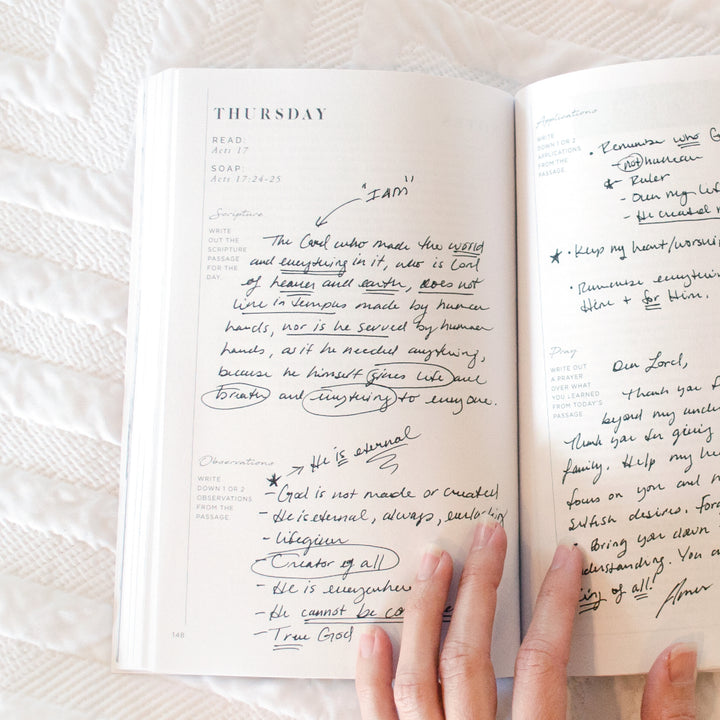 THURSDAY
READ:
Acts 17
SOAP:
Acts 17:24-25
Scripture
WRITE
OUT THE
SCRIPTURE
PASSAGE
FOR THE
DAY.
"I AM"
The Lord who made the world
and everything in it, who is Lord
of heaven and earth, does not
live in temples made by human
hands, nor is he served by human
hands, as if he needed anything,
because he himself gives life and
breath and everything to everyone.
Observations
WRITE
DOWN 1 OR 2
OBSERVATIONS
FROM THE
PASSAGE.
He is eternal
- God is not made or created
- He is eternal, always, everlasting
- lifegiver
- Creator of all
- He is everywhere
- He cannot be
- True God
148
Applications
WRITE
DOWN 1 OR 2
APPLICATIONS
FROM THE
PASSAGE.
• Remember who G
- not human
- Ruler
- Over my life
- He created
• Keep my heart/worship
• Remember everything
Him + for Him.
Pray
WRITE OUT
A PRAYER
OVER WHAT
YOU LEARNED
FROM TODAY'S
PASSAGE.
Dear Lord,
Thank you f
beyond my unde
Thank you for giving
family. Help my he
focus on you and n
selfish desires. Forg
Bring you down
understanding. You a
King of all!
Amen